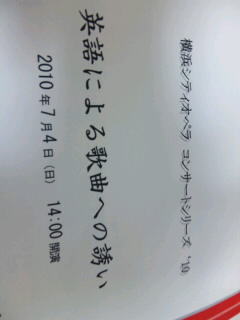 横浜シティオペラ コンサートシリーズ '10
英語による歌曲への誘い
2010年7月4日（日） 14:00開演